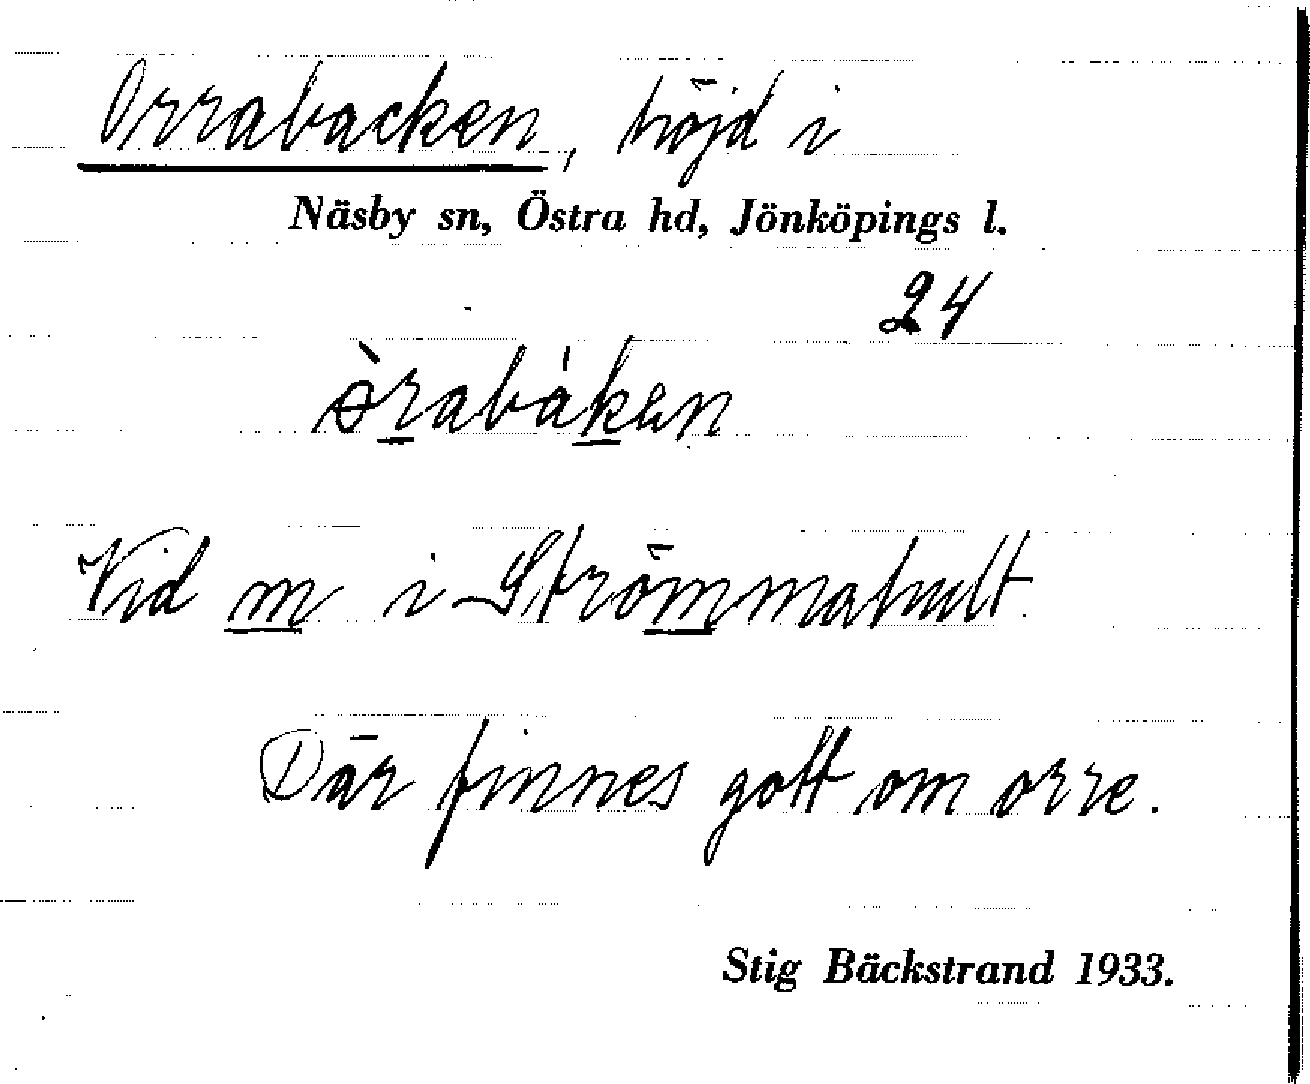 Orrabacken, höjd i
Näsby sn, Östra hd, Jönköpings l.
24
ɵ̀rabákən
Vid m i Strömmahult.
Där finnes gott om orre.
Stig Bäckstrand 1933.